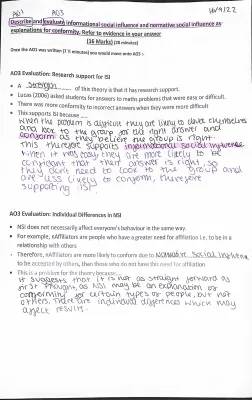 AO1 AO3 16/9/22
Describe and evaluate informational social influence and normative social influence as
explanations for conformity. Refer to evidence in your answer
(16 Marks) (20 minutes)
Once the AO1 was written (7 ½ minutes) you would move onto AO3 :-
AO3 Evaluation: Research support for ISI
• A strength of this theory is that it has research support.
• Lucas (2006) asked students for answers to maths problems that were easy or difficult.
• There was more conformity to incorrect answers when they were more difficult
• This supports ISI because
When the problem is difficult they are likely to doubt themselves
and look to the group for the right answer and
conform as they believe the group is right.
This therefore supports informational social influence
When it was easy they are more likely to be
confident that their answer is right, so
they don't need to look to the group and
are less likely to conform, therefore
supporting ISI
AO3 Evaluation: Individual Differences in NSI
• NSI does not necessarily affect everyone's behaviour in the same way.
• For example, nAffiliators are people who have a greater need for affiliation i.e. to be in a
relationship with others
• Therefore, nAffiliators are more likely to conform due to Normative Social Influence
to be accepted by others, then those who do not have this need for affiliation
• This is a problem for the theory because
It suggests that it is not as straight forward as
first thought, as NSI may be an explanation of
conformity for certain types of people, but not
others. There are individual differences which may
affect results.